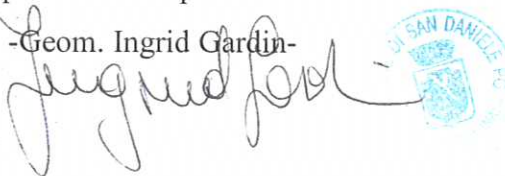 -Geom. Ingrid Gardin-
Ingrid Gardin
DI SAN DANIELE PO